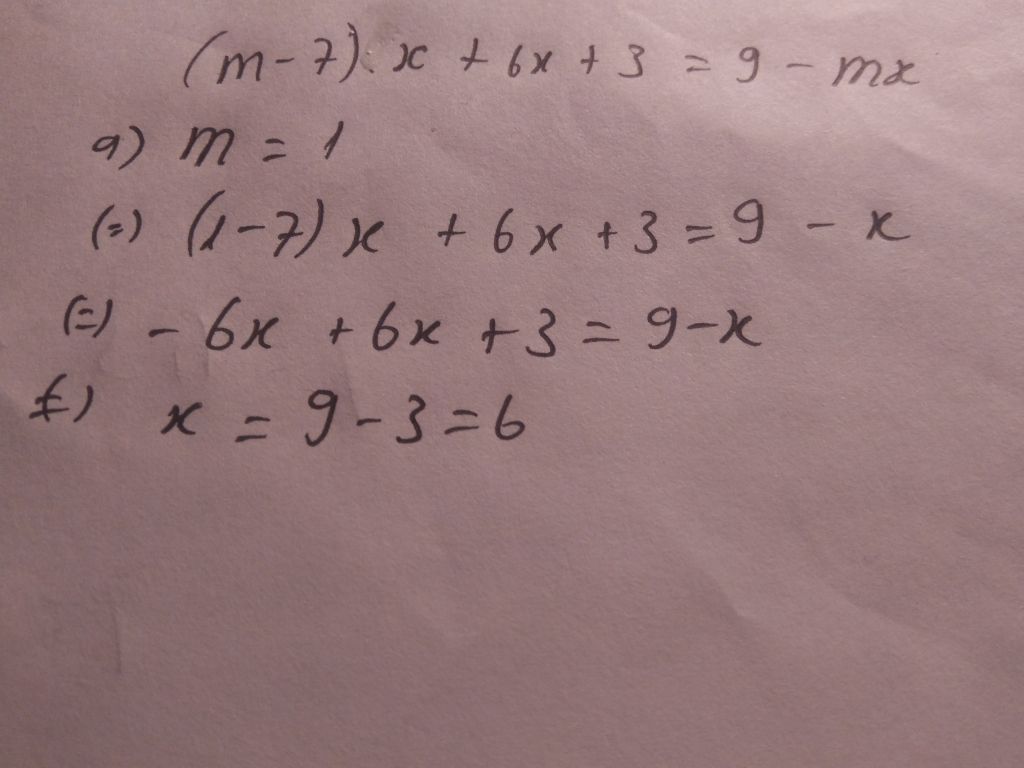 (m-7).x + 6x + 3 = 9 - mx
a) m = 1
(=) (1-7)x + 6x + 3 = 9 - x
(=) - 6x + 6x + 3 = 9 - x
(=) x = 9 - 3 = 6